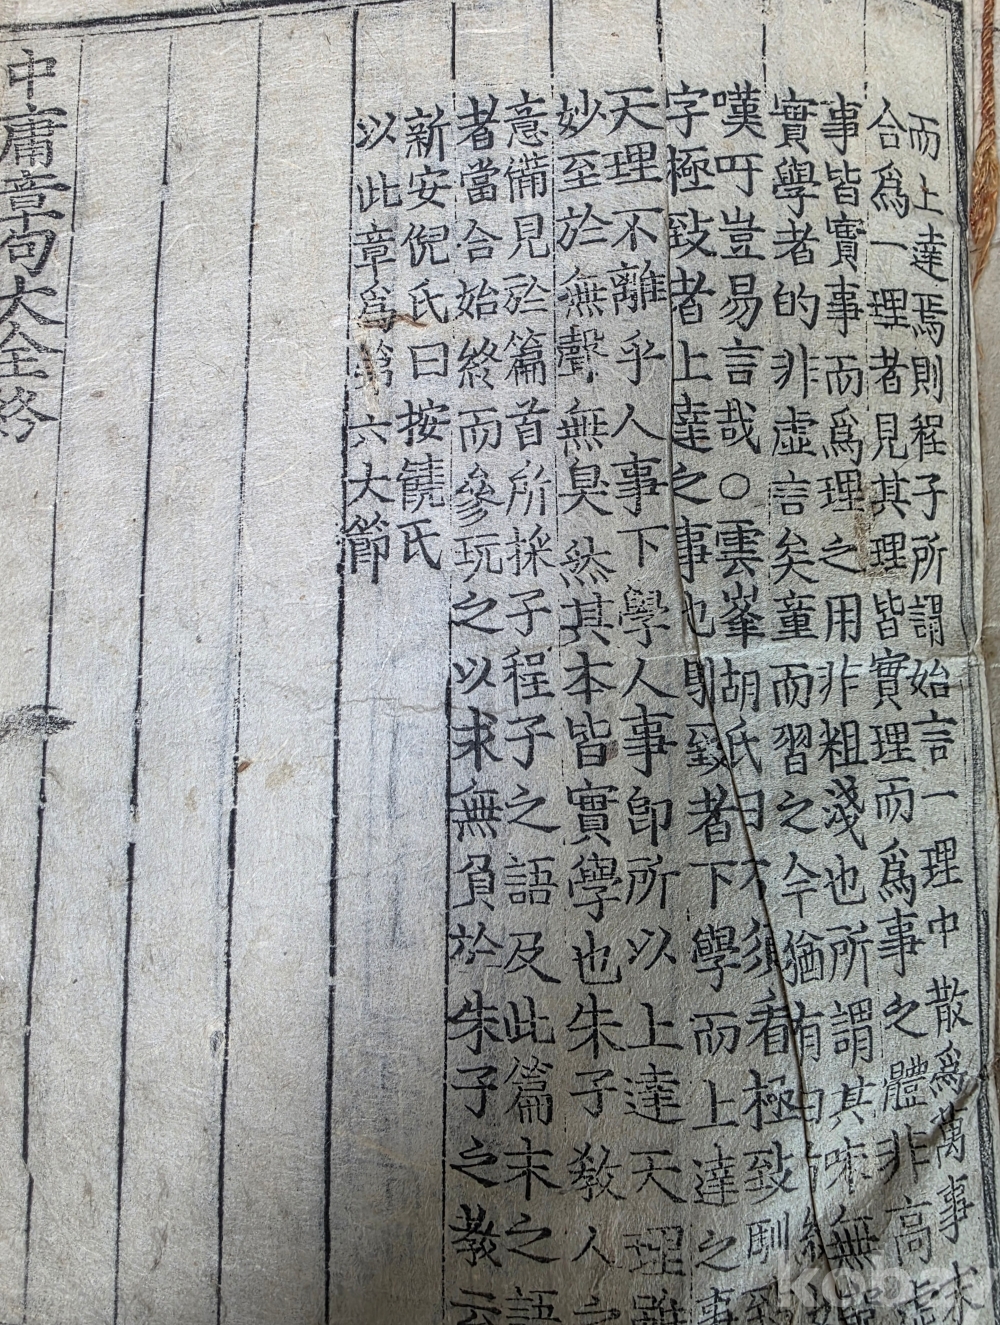 而上達焉則程子所謂始言一理中散爲萬事末
合爲一理者見其理皆實理而爲事之體非高虛
事皆實事而爲理之用非粗淺也所謂其味無
實學者的非虛言矣童而習之今猶有
嘆吁豈易言哉○雲峯胡氏曰不須看極致馴致
字極致者上達之事也馴致者下學而上達之事
天理不離乎人事下學人事卽所以上達天理雖
妙至於無聲無臭然其本皆實學也朱子教人之
意備見於篇首所採子程子之語及此篇末之語
者當合始終而參玩之以求無負於朱子之教云
新安倪氏曰按饒氏
以此章爲第六大節
中庸章句大全終
kobay